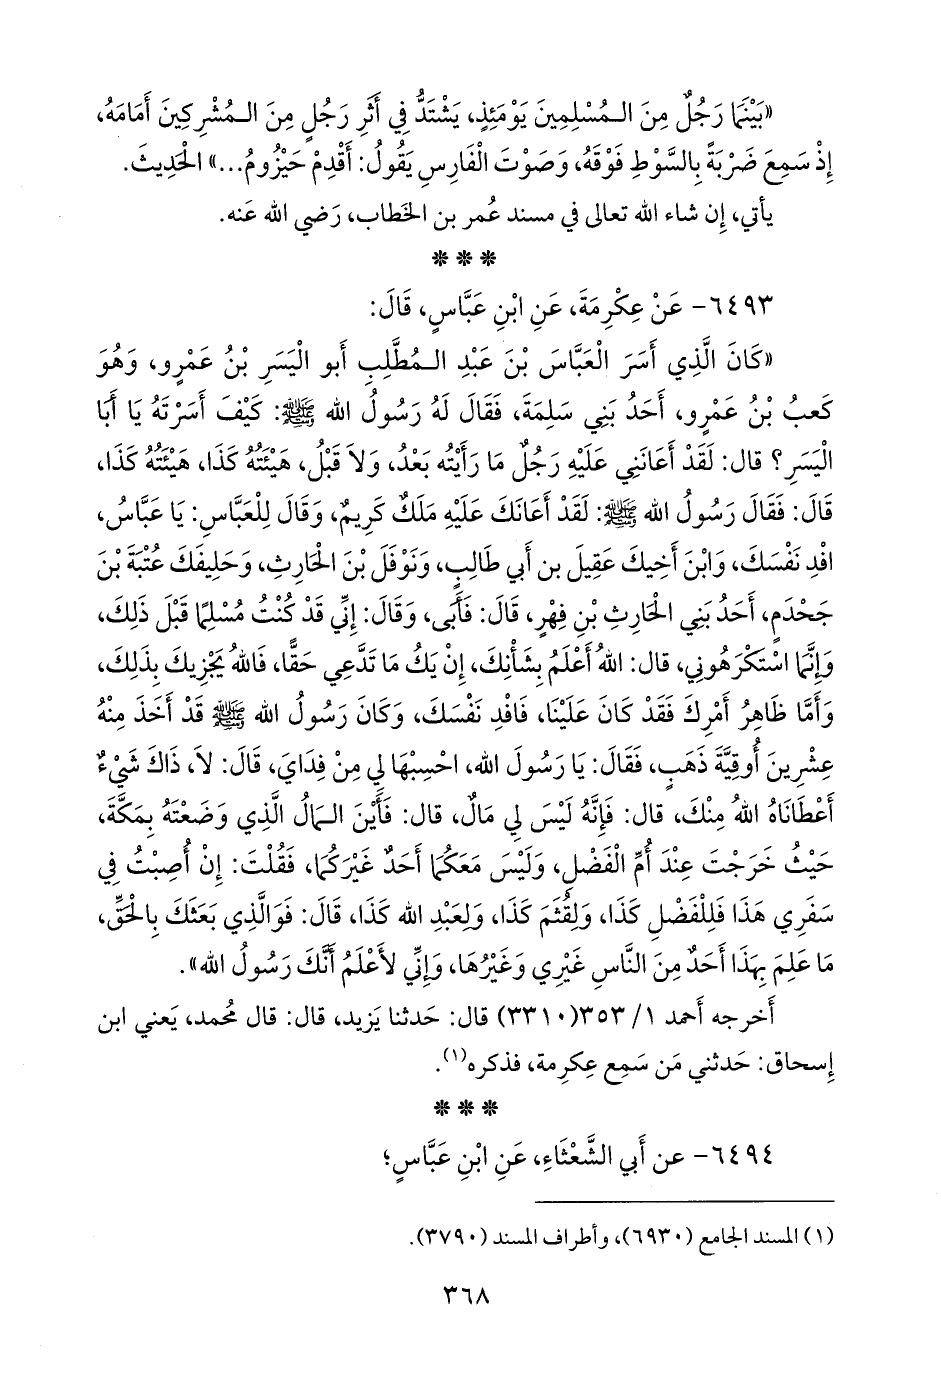 «بَيْنَمَا رَجُلٌ مِنَ الـمُسْلِمِينَ يَوْمَئِذٍ، يَشْتَدُّ فِي أَثَرِ رَجُلٍ مِنَ الـمُشْرِكِينَ أَمَامَهُ،
إِذْ سَمِعَ ضَرْبَةً بِالسَّوْطِ فَوْقَهُ، وَصَوْتَ الْفَارِسِ يَقُولُ: أَقْدِمْ حَيْزُومُ...» الْحَدِيثَ.
يأتي، إن شاء الله تعالى في مسند عُمر بن الخطاب، رَضي الله عَنه.
* * *
٦٤٩٣- عَنْ عِكْرِمَةَ، عَنِ ابْنِ عَبَّاسٍ، قَالَ:
«كَانَ الَّذِي أَسَرَ الْعَبَّاسَ بْنَ عَبْدِ الـمُطَّلِبِ أَبو الْيَسَرِ بْنُ عَمْرٍو، وَهُوَ
كَعبُ بْنُ عَمْرٍو، أَحَدُ بَنِي سَلِمَةَ، فَقَالَ لَهُ رَسُولُ الله ﷺ: كَيْفَ أَسَرْتَهُ يَا أَبَا
الْيَسَرِ؟ قال: لَقَدْ أَعَانَنِي عَلَيْهِ رَجُلٌ مَا رَأَيْتُه بَعْدُ، وَلاَ قَبْلُ، هَيْئَتُهُ كَذَا، هَيْئَتُهُ كَذَا،
قَالَ: فَقَالَ رَسُولُ الله ﷺ: لَقَدْ أَعَانَكَ عَلَيْهِ مَلَكٌ كَرِيمٌ، وَقَالَ لِلْعَبَّاسِ: يَا عَبَّاسُ،
افْدِ نَفْسَكَ، وَابْنَ أَخِيكَ عَقِيلَ بن أَبي طَالِبٍ، وَنَوْفَلَ بْنَ الْحَارِثِ، وَحَلِيفَكَ عُتْبَةَ بْنَ
جَحْدَمٍ، أَحَدُ بَنِي الْحَارِثِ بْنِ فِهْرٍ، قَالَ: فَأَبَى، وَقَالَ: إِنِّي قَدْ كُنْتُ مُسْلِمًا قَبْلَ ذَلِكَ،
وَإِنَّمَا اسْتَكْرَهُونِي، قال: اللهُ أَعْلَمُ بِشَأْنِكَ، إِنْ يَكُ مَا تَدَّعِي حَقًّا، فَاللهُ يَجْزِيكَ بِذَلِكَ،
وَأَمَّا ظَاهِرُ أَمْرِكَ فَقَدْ كَانَ عَلَيْنَا، فَافْدِ نَفْسَكَ، وَكَانَ رَسُولُ الله ﷺ قَدْ أَخَذَ مِنْهُ
عِشْرِينَ أُوقِيَّةَ ذَهَبٍ، فَقَالَ: يَا رَسُولَ الله، احْسِبْهَا لِي مِنْ فِدَايَ، قَالَ: لاَ، ذَاكَ شَيْءٌ
أَعْطَانَاهُ اللهُ مِنْكَ، قال: فَإِنَّهُ لَيْسَ لِي مَالٌ، قال: فَأَيْنَ الـمَالُ الَّذِي وَضَعْتَهُ بِمَكَّةَ،
حَيْثُ خَرَجْتَ عِنْدَ أُمِّ الْفَضْلِ، وَلَيْسَ مَعَكُمَا أَحَدٌ غَيْرَكُمَا، فَقُلْتَ: إِنْ أُصِبْتُ فِي
سَفَرِي هَذَا فَلِلْفَضْلِ كَذَا، وَلِقُثَمَ كَذَا، وَلِعَبْدِ الله كَذَا، قَالَ: فَوَالَّذِي بَعَثَكَ بِالْحَقِّ،
مَا عَلِمَ بِهَذَا أَحَدٌ مِنَ النَّاسِ غَيْرِي وَغَيْرُهَا، وَإِنِّي لأَعْلَمُ أَنَّكَ رَسُولُ الله».
أَخرجه أَحمد ١/ ٣٥٣(٣٣١٠) قال: حَدثنا يَزيد، قال: قال مُحمد، يَعني ابن
إِسحاق: حَدثني مَن سَمِع عِكرِمة، فذكره(١).
* * *
٦٤٩٤- عن أَبي الشَّعْثَاءِ، عَنِ ابْنِ عَبَّاسٍ؛
(١) المسند الجامع (٦٩٣٠)، وأطراف المسند (٣٧٩٠).
٣٦٨